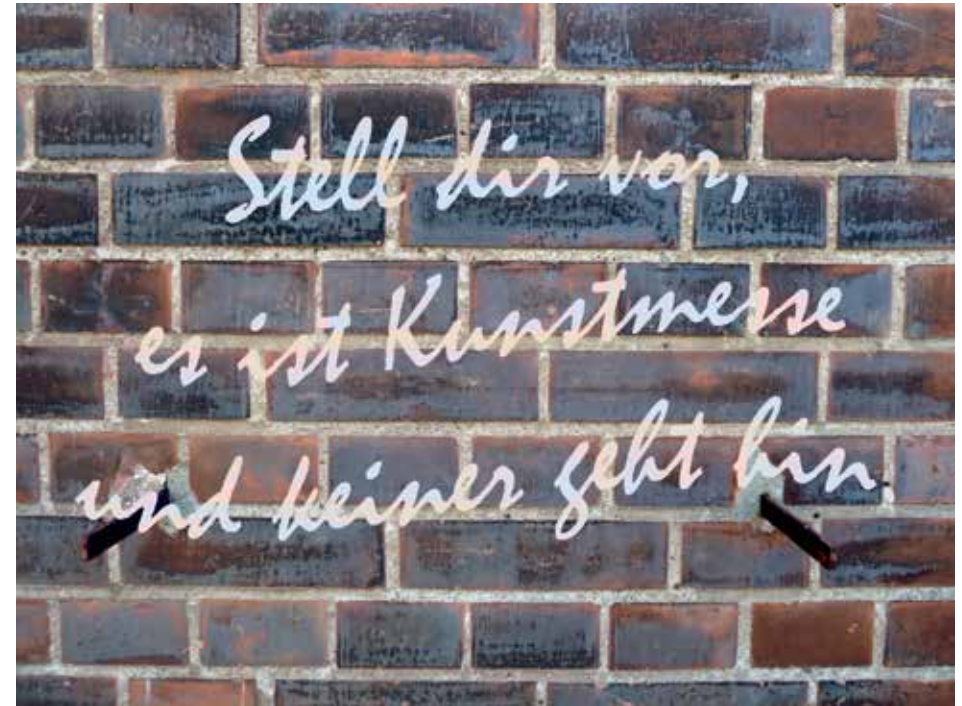 Stell dir vor,
es ist Kunstmesse
und keiner geht hin